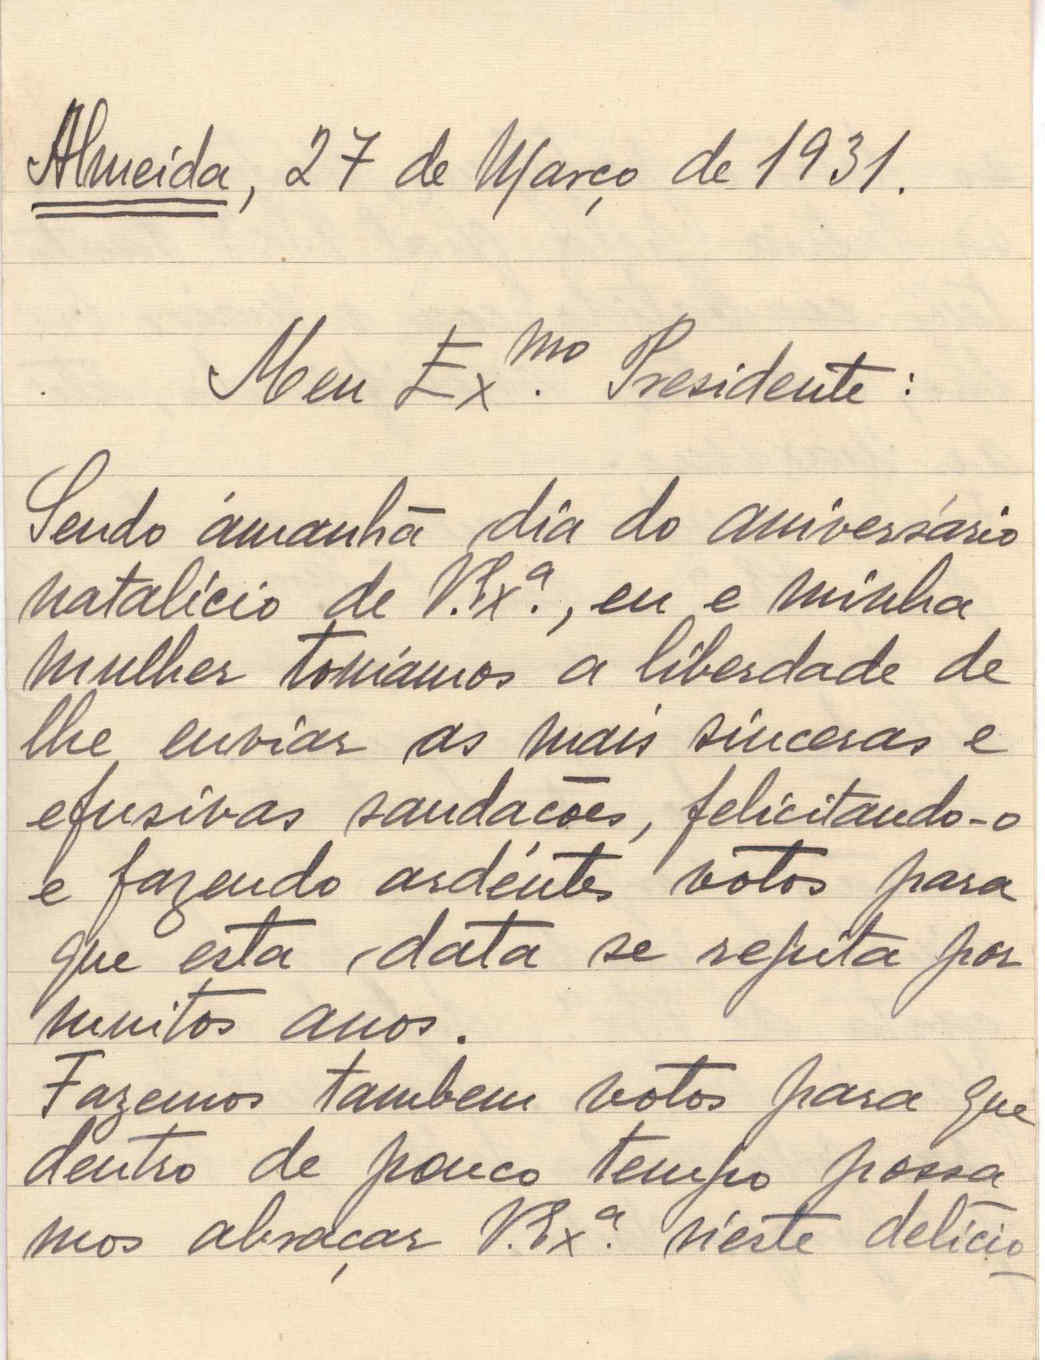 Almeida, 27 de Março de 1931.
Meu Ex.mo Presidente:
Sendo ámanhã dia do aniversário
natalício de V. Ex.ª, eu e minha
mulher tomâmos a liberdade de
lhe enviar as mais sinceras e
efusivas saudacões, felicitando-o
e fazendo ardêntes votos para
que esta data se repita por
muitos anos.
Fazemos tambem votos para que
dentro de pouco tempo possa
mos abraçar V. Ex.ª n'este delicio